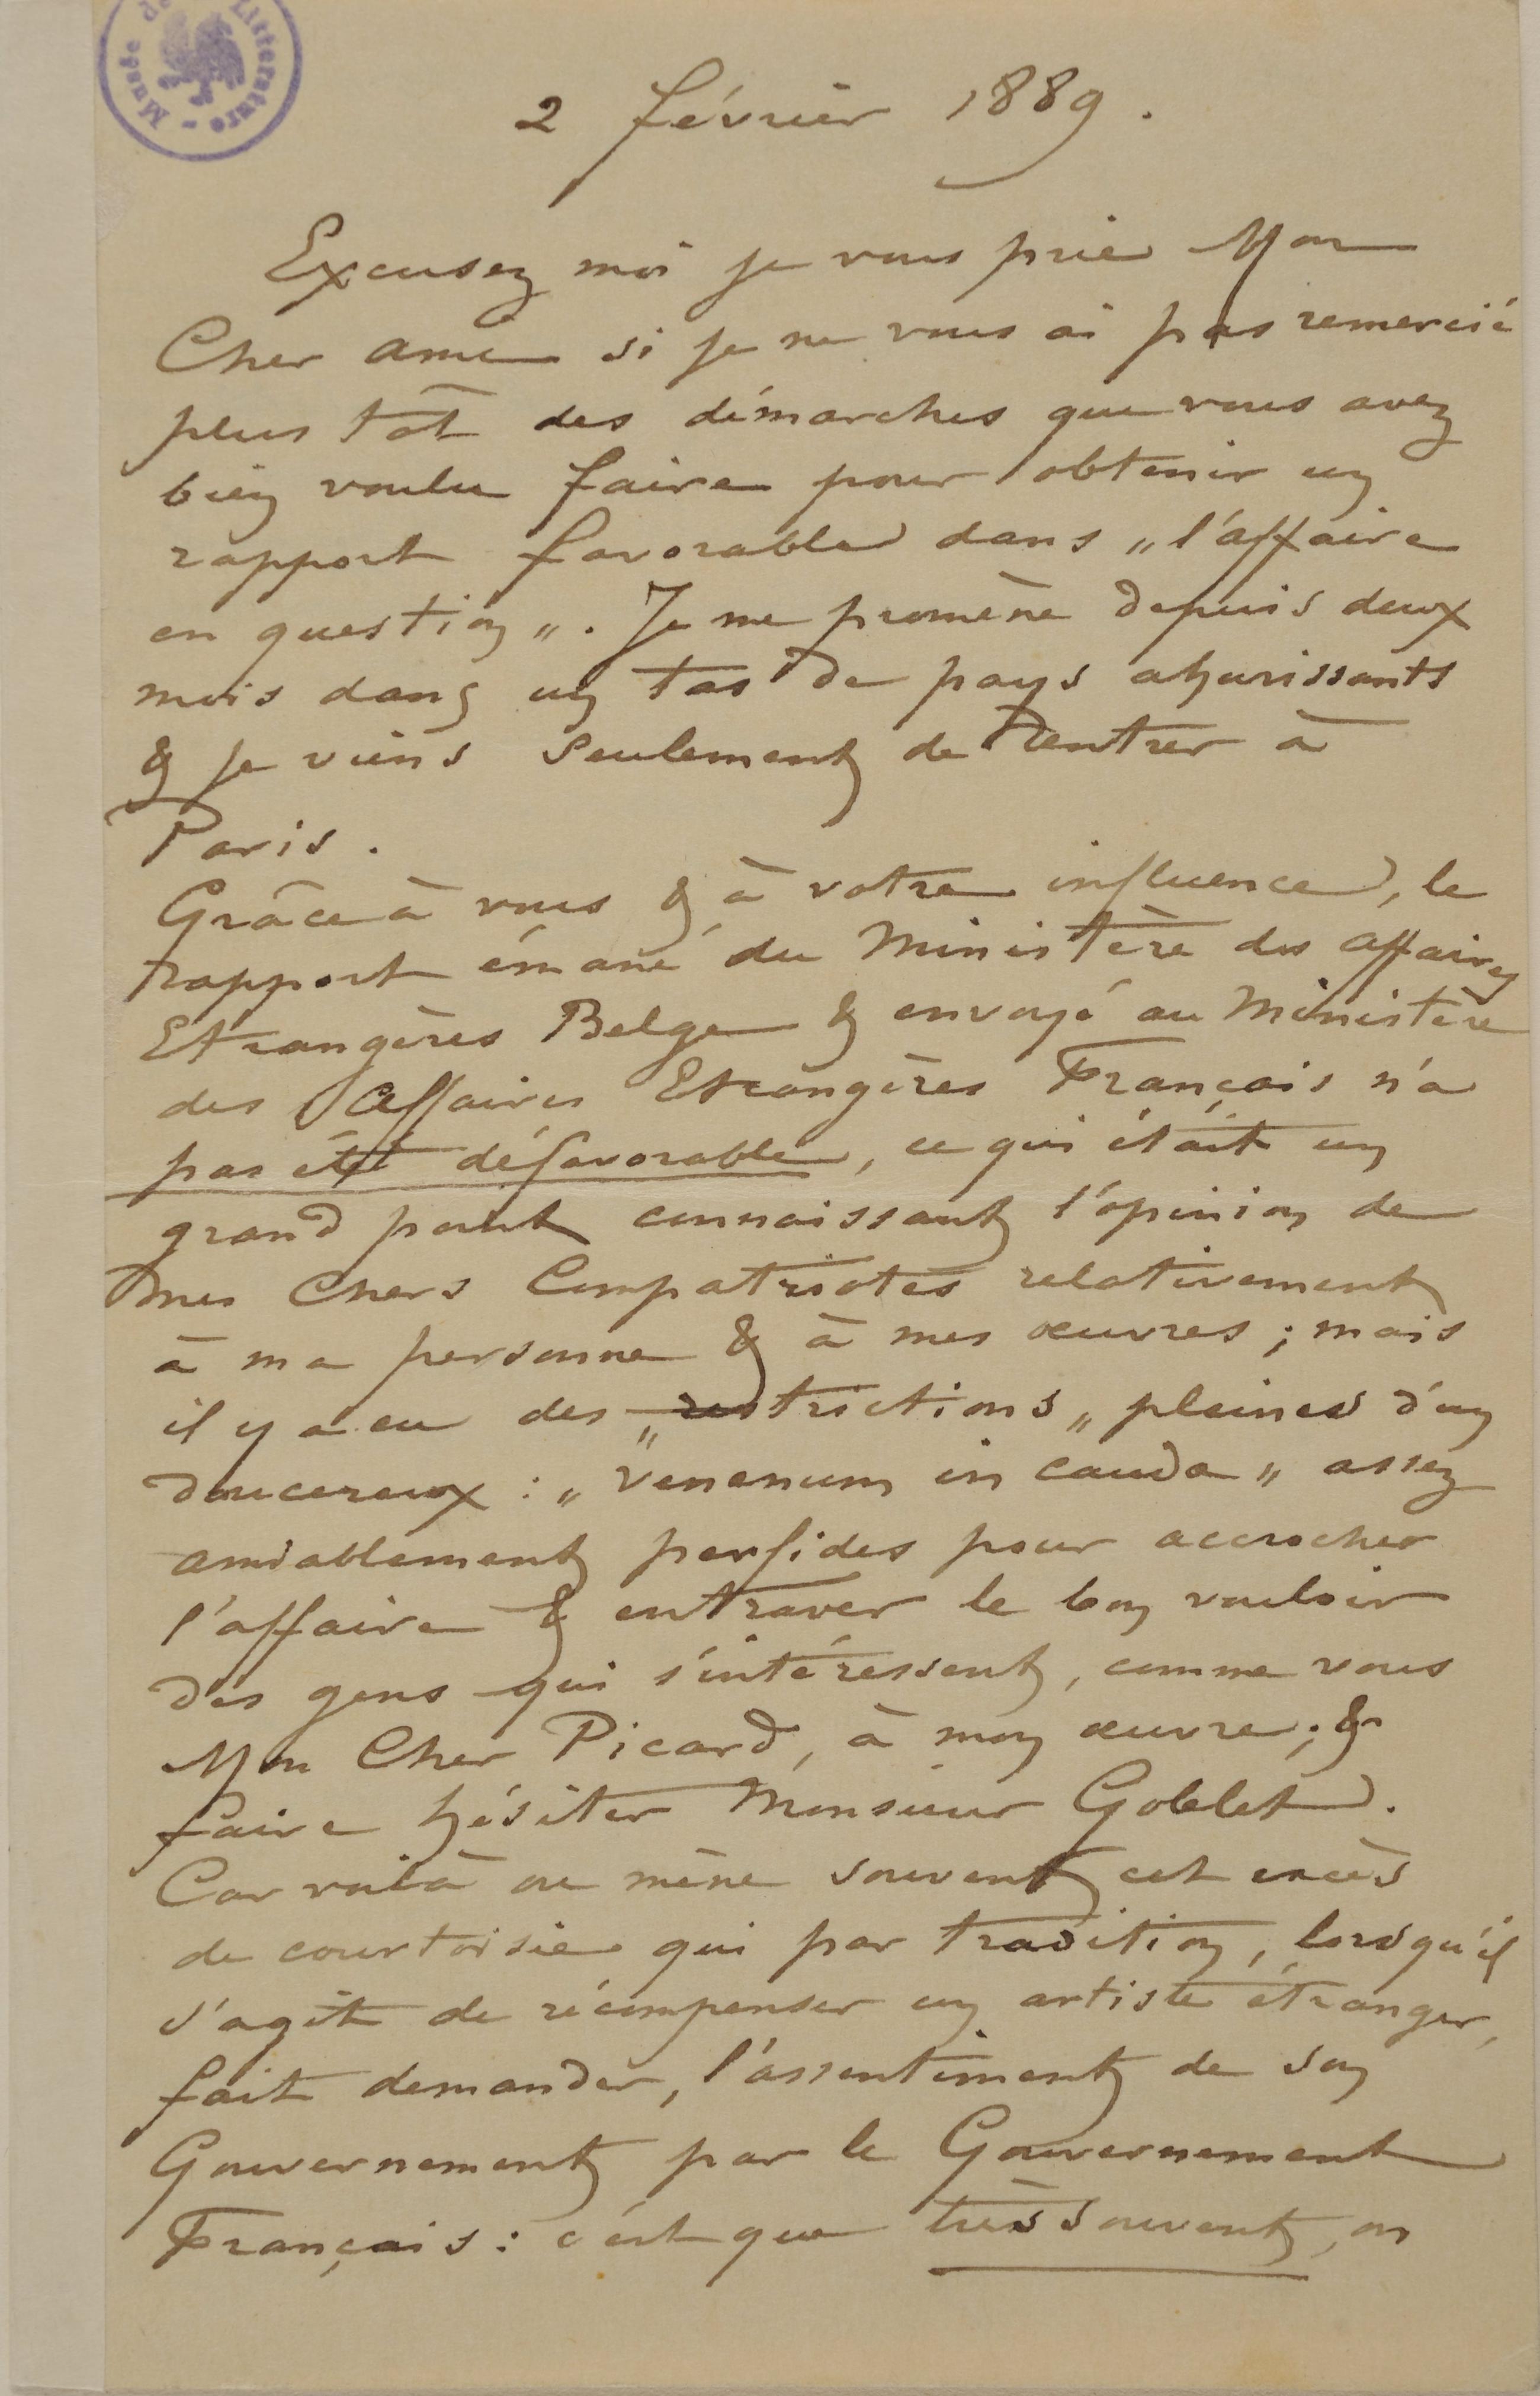 Musée de Littérature -
2 février 1889.
Excusez moi je vous prie Mon
Cher ami si je ne vous ai pas remercié
plus tôt des démarches que vous avez
bien voulu faire pour obtenir un
rapport favorable dans „l'affaire
en question„. Je me promène depuis deux
mois dans un tas de pays ahurissants
& je viens seulement de rentrer à
Paris.
Grâce à vous & à votre influence, le
rapport émané du Ministère des Affaires
Etrangères Belge & envoyé au Ministère
des Affaires Etrangères Français n'a
pas été défavorable, ce qui était un
grand point connaissant l'opinion de
mes Chers Compatriotes relativement
à ma personne & à mes œuvres ; mais
il y a eu des „restrictions„ pleines d'un
doucereux : „venenum in cauda„ assez
amiablement perfides pour accrocher
l'affaire & entraver le bon vouloir
des gens qui s'intéressent, comme vous
Mon Cher Picard, à mon œuvre ; &
faire hésiter Monsieur Goblet.
Car voilà où mène souvent cet excès
de courtoisie qui par tradition, lorsqu'il
s'agit de récompenser un artiste étranger,
fait demander, l'assentiment de son
Gouvernement par le Gouvernement
Français : c'est que très souvent, on